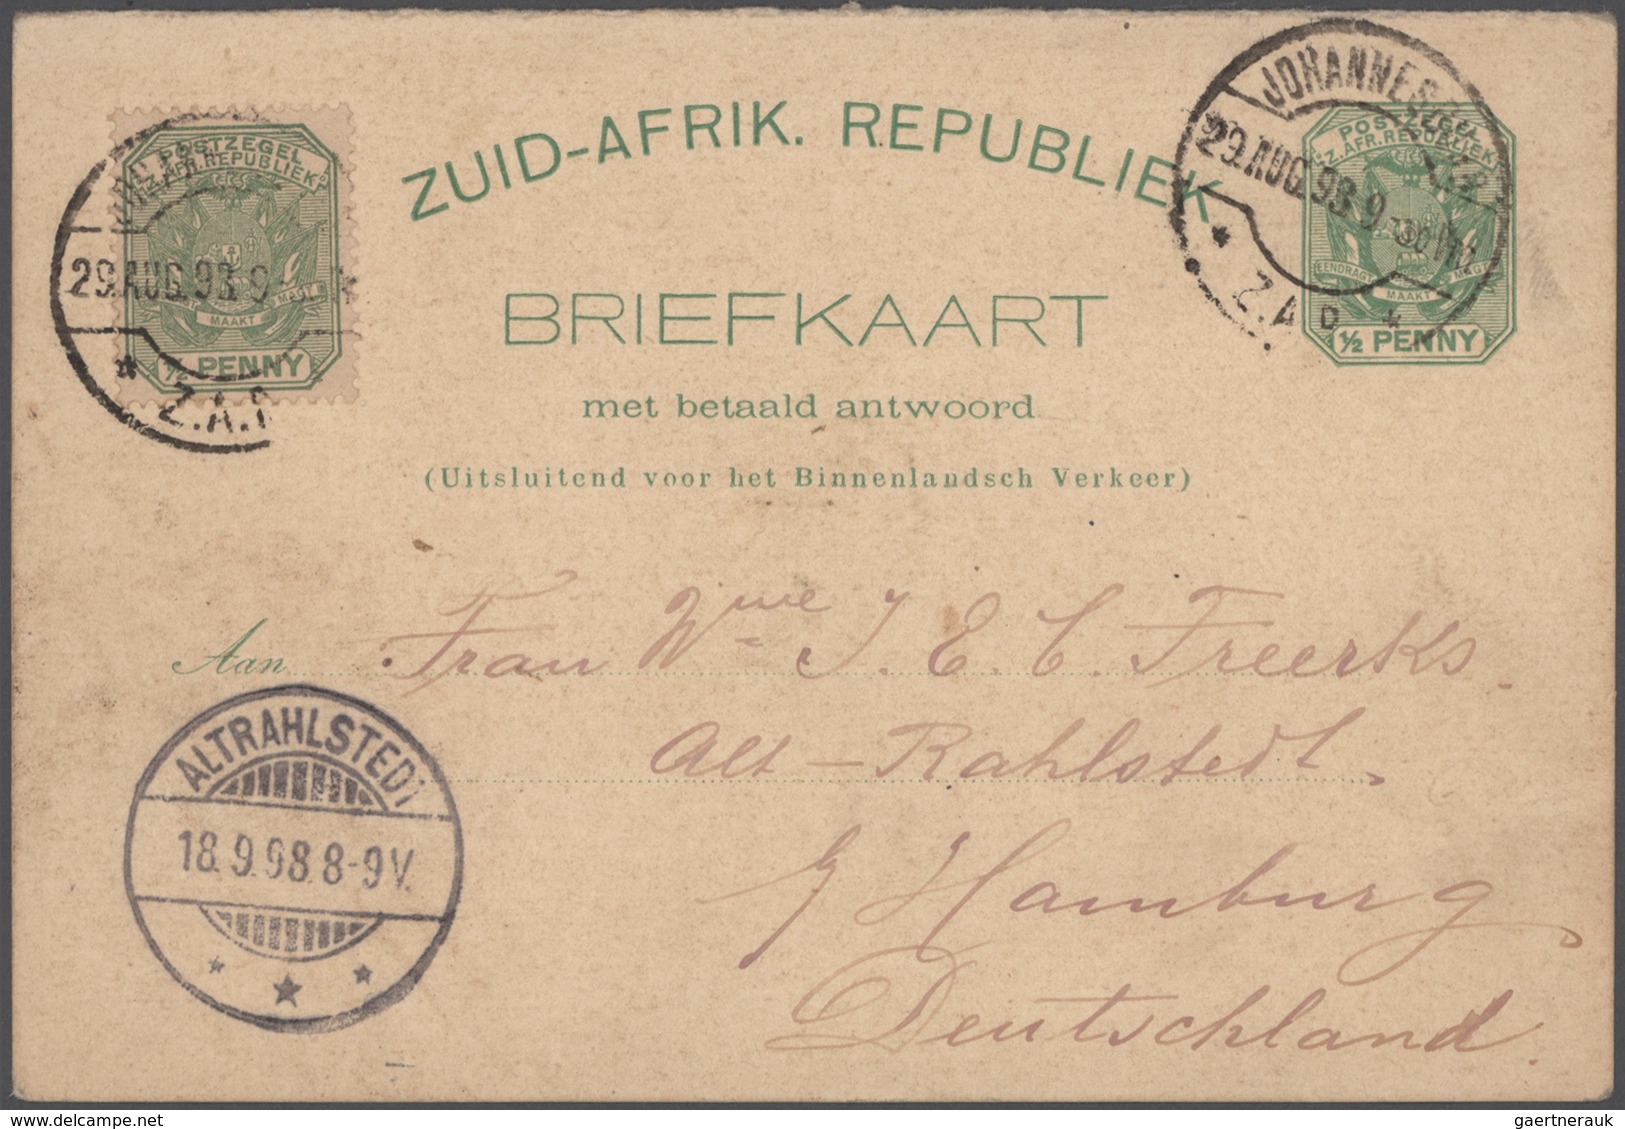 ZUID-AFRIK. REPUBLIEK
BRIEFKAART
met betaald antwoord
(Uitsluitend voor het Binnenlandsch Verkeer)
POSTZEGEL
Z.AFR.REPUBLIEK
MAAKT
½ PENNY
29.AUG.98. 9
Z.A.R
JOHANNES
29.AUG.98. 9
Z.A.R
POSTZEGEL
Z.AFR.REPUBLIEK
EENDRAGT MAAKT MAGT
½ PENNY
Aan Frau Wwe J. E. C. Freerks.
Alt-Rahlstedt.
b/ Hamburg
Deutschland.
ALTRAHLSTEDT
18.9.98.8-9V.
www.delcampe.net
gaertnerauk